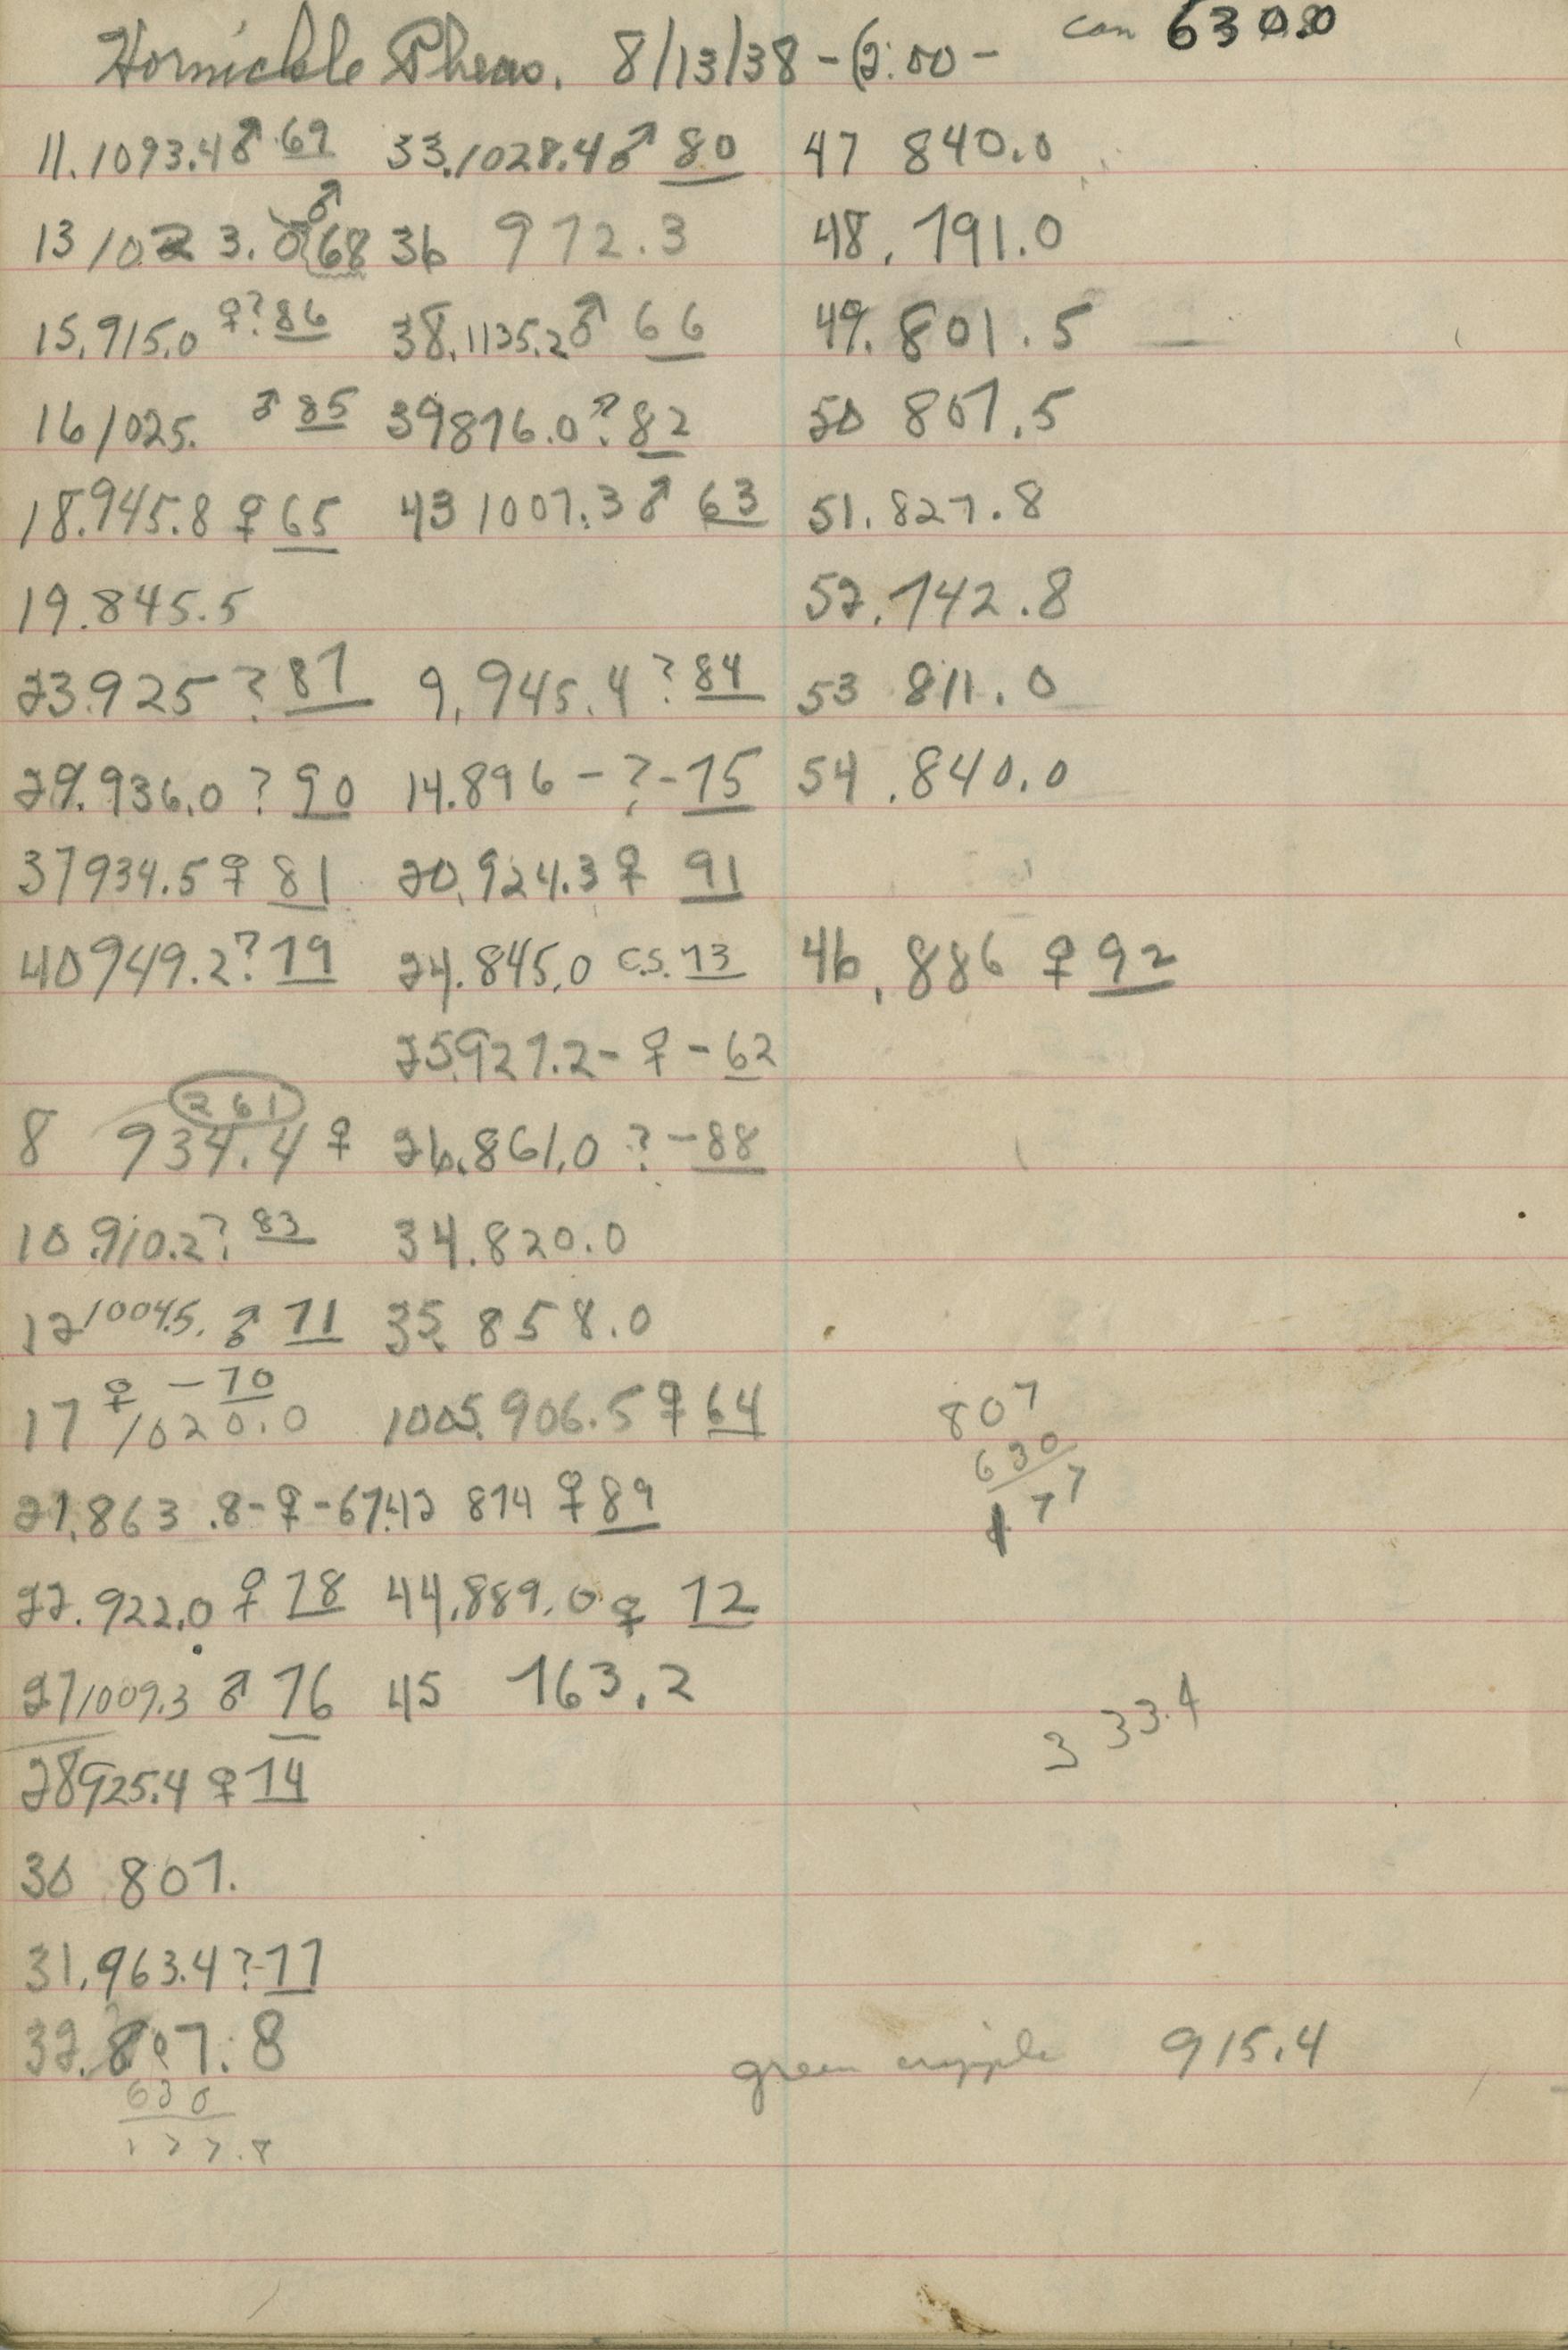 Hornickle Pheas. 8/13/38 - 2:00 - can 630.0
11. 1093.4 ♂ 69 33. 1028.4 ♂ 80 47 840.0
13 1023.0 ♂ 68 36 972.3 48. 791.0
15. 915.0 ♀? 86 38. 1135.2 ♂ 66 49. 801.5
16 1025. ♂ 85 39 876.0 ? 82 50 807.5
18. 945.8 ♀ 65 43 1007.3 ♂ 63 51. 827.8
19. 845.5 52. 742.8
23. 925 ? 87 9. 945.4 ? 84 53 811.0
29. 936.0 ? 90 14. 896 - ? - 75 54. 840.0
37 934.5 ♀ 81 20. 924.3 ♀ 91
40 949.2 ? 79 24. 845.0 C.S. 73 46. 886 ♀ 92
25. 927.2 - ♀ - 62
261
8 934.4 ♀ 26. 861.0 ? - 88
10. 910.2 ? 83 34. 820.0
12 1004.5. ♂ 71 35. 858.0
♀ - 70
17 1020.0 1005. 906.5 ♀ 64 807
630
177
21. 863.8 - ♀ - 67. 42 874 ♀ 89
22. 922.0 ♀ 78 44. 889.0 ♀ 72
27 1009.3 ♂ 76 45 763.2 3 33.4
28 925.4 ♀ 74
30 807.
31. 963.4 ? - 77
32. 807.8 green cripple 915.4
630
177.8